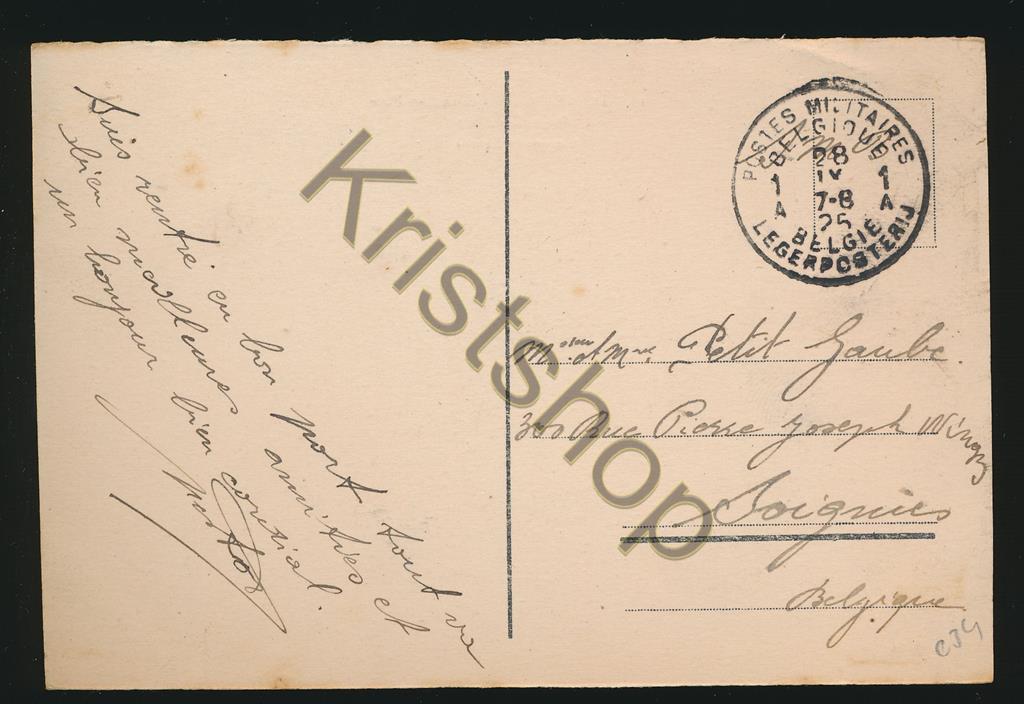 Suis rentré en bon port tout va
bien meilleures amitiés et
un bonjour bien cordial.
POSTES MILITAIRES
BELGIQUE
28
IX
1 7-8 1
A 25 A
BELGIE
LEGERPOSTERIJ
Petit Gaube.
300 Rue Pierre Joseph Wincqz
Soignies
Belgique
C34
Kristshop